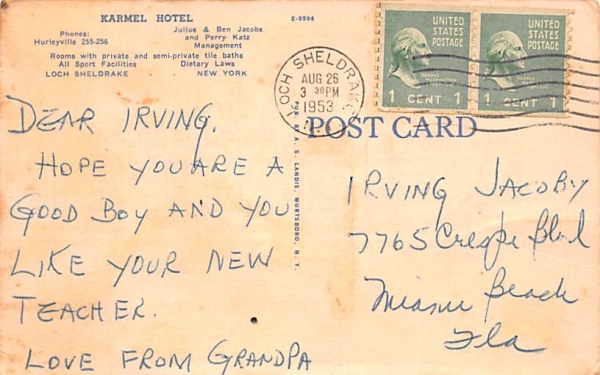 KARMEL HOTEL
Phones:
Hurleyville 255-256
Julius & Ben Jacobs
and Perry Katz
Management
Rooms with private and semi-private tile baths
All Sport Facilities
Dietary Laws
LOCH SHELDRAKE - NEW YORK
E-9994
DEAR IRVING,
HOPE YOU ARE A
GOOD BOY AND YOU
LIKE YOUR NEW
TEACHER.
LOVE FROM GRANDPA
PUB. BY A. S. LANDIS, WURTSBORO, N. Y.
LOCH SHELDRAKE
AUG 26
3 30PM
1953
N.Y.
UNITED
STATES
POSTAGE
1 CENT 1
UNITED
STATES
POSTAGE
1 CENT 1
POST CARD
IRVING JACOBY
7765 Crespi Blvd
Miami Beach
Fla